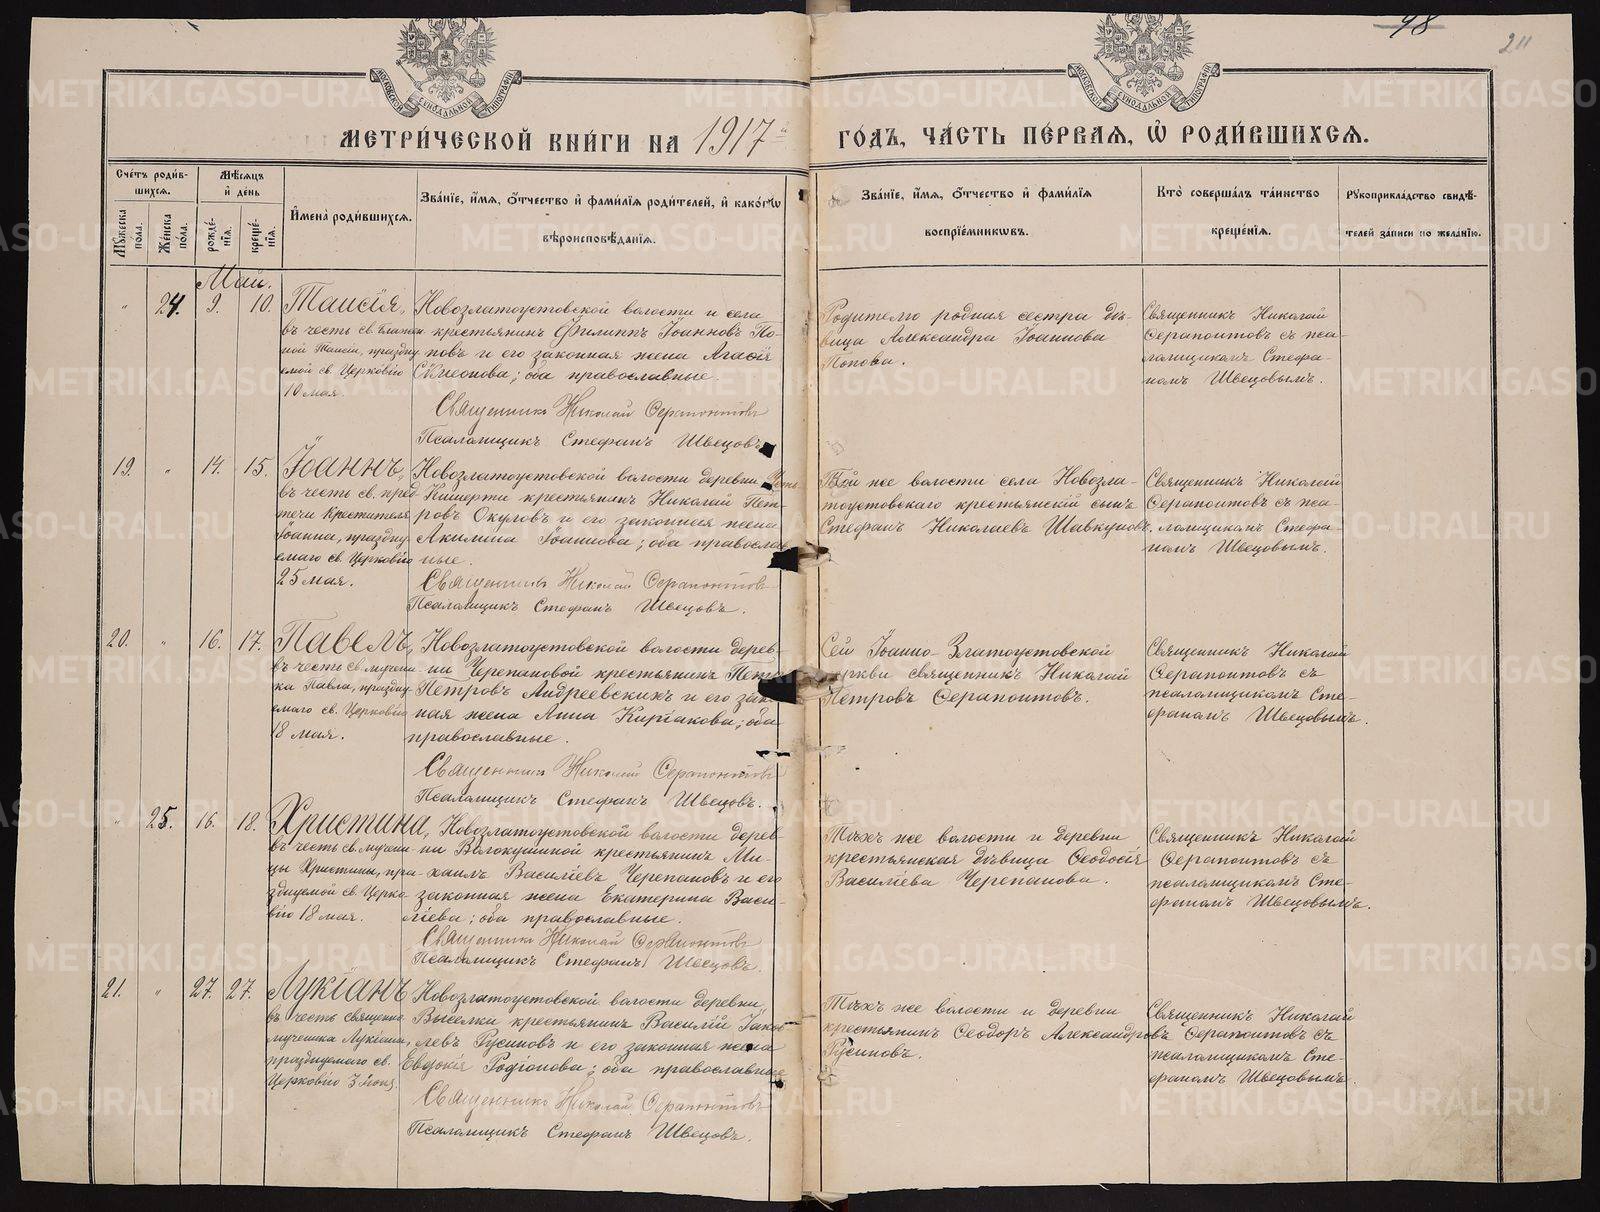 98
211
МОСКОВСКОЙ СѴНОДАЛЬНОЙ ТИПОГРАФІИ
МОСКОВСКОЙ СѴНОДАЛЬНОЙ ТИПОГРАФІИ
МЕТРИ́ЧЕСКОЙ КНИ́ГИ НА 1917й
ГО́ДЪ, ЧА́СТЬ ПЕ́РВАѦ, Ѡ҆ РОДИ́ВШИХСѦ.
Сче́тъ роди́в-
шихсѧ.
Мꙋ́жеска
по́ла.
Же́нска
по́ла.
Мѣ́сѧцъ
и҆ де́нь
рожде́-
нїѧ.
креще́-
нїѧ.
И҆мена̀ роди́вшихсѧ.
Зва́нїе, и҆́мѧ, ѻ҆́тчество и҆ фами́лїѧ роди́телей, и҆ како́гѡ
вѣроисповѣ́данїѧ.
Зва́нїе, и҆́мѧ, ѻ҆́тчество и҆ фами́лїѧ
воспрїе́мникѡвъ.
Кто̀ соверша́лъ та́инство
креще́нїѧ.
Рꙋкоприкла́дство свидѣ́-
телей за́писи по жела́нїю.
Май.
" 24. 9. 10.
Таисія,
въ честь св. блажен
ной Таисіи, праздну
емой св. Церковію
10 мая.
Новозлатоустовской волости и села
крестьянинъ Филиппъ Іоанновъ По-
повъ и его законная жена Агафія
Симеонова; оба православные.
Священникъ Николай Серапонтовъ
Псаломщикъ Стефанъ Швецовъ
Родителю родная сестра дѣ-
вица Александра Іоаннова
Попова.
Священникъ Николай
Серапонтовъ съ пса-
ломщикомъ Стефа-
номъ Швецовымъ.
19. " 14. 15.
Іоаннъ,
въ честь св. пред
течи Крестителя
Іоанна, праздну
емаго св. Церковію
25 мая.
Новозлатоустовской волости деревни Усть
Кишерти крестьянинъ Николай Пет-
ровъ Окуловъ и его законная жена
Акилина Іоаннова; оба православ
ные.
Священникъ Николай Серапонтовъ
Псаломщикъ Стефанъ Швецовъ.
Той же волости села Новозла-
тоустовскаго крестьянскій сынъ
Стефанъ Николаевъ Шавкуновъ.
Священникъ Николай
Серапонтовъ съ пса-
ломщикомъ Стефа-
номъ Швецовымъ.
20. " 16. 17.
Павелъ,
въ честь св. мучени
ка Павла, праздну
емаго св. Церковію
18 мая.
Новозлатоустовской волости дерев-
ни Черепановой крестьянинъ Петръ
Петровъ Андреевскихъ и его закон-
ная жена Анна Киріакова; оба
православные.
Священникъ Николай Серапонтовъ
Псаломщикъ Стефанъ Швецовъ.
Сей Іоанно-Златоустовской
церкви священникъ Николай
Петровъ Серапонтовъ.
Священникъ Николай
Серапонтовъ съ
псаломщикомъ Сте-
фаномъ Швецовымъ.
" 25. 16. 18.
Христина,
въ честь св. мучени
цы Христины, пра
зднуемой св. Церко
вію 18 мая.
Новозлатоустовской волости дерев
ни Волокушиной крестьянинъ Ми-
хаилъ Василіевъ Черепановъ и его
законная жена Екатерина Васи-
ліева; оба православные.
Священникъ Николай Серапонтовъ
Псаломщикъ Стефанъ Швецовъ.
Тѣхъ же волости и деревни
крестьянская дѣвица Феодосія
Василіева Черепанова.
Священникъ Николай
Серапонтовъ съ
псаломщикомъ Сте-
фаномъ Швецовымъ.
21. " 27. 27.
Лукіанъ
въ честь священно
мученика Лукіана,
празднуемаго св.
Церковію 3 іюня
Новозлатоустовской волости деревни
Выселки крестьянинъ Василій Іаков
левъ Русиновъ и его законная жена
Евдокія Родіонова; оба православные
Священникъ Николай Серапонтовъ
Псаломщикъ Стефанъ Швецовъ.
Тѣхъ же волости и деревни
крестьянинъ Феодоръ Александровъ
Русиновъ.
Священникъ Николай
Серапонтовъ съ
псаломщикомъ Сте-
фаномъ Швецовымъ.